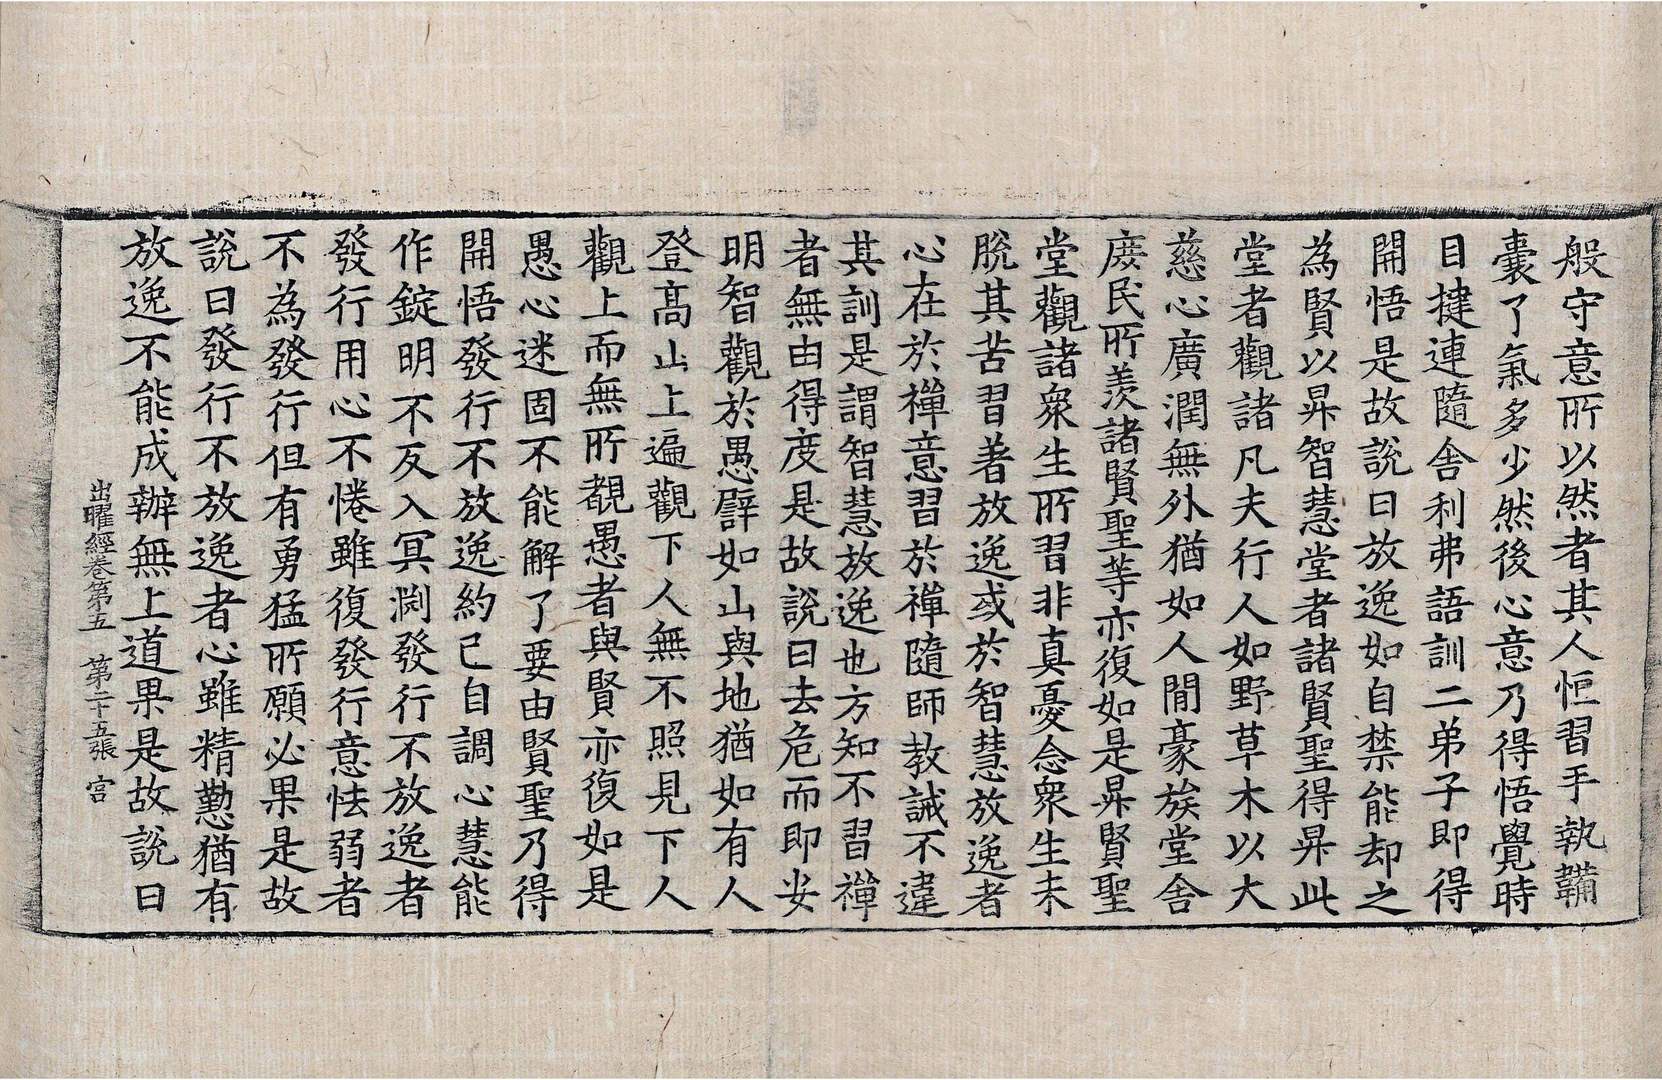 般守意所以然者其人恒習手執韛
囊了氣多少然後心意乃得悟覺時
目揵連隨舍利弗語訓二弟子即得
開悟是故說曰放逸如自禁能却之
為賢以昇智慧堂者諸賢聖得昇此
堂者觀諸凡夫行人如野草木以大
慈心廣潤無外猶如人間豪族堂舍
庶民所羨諸賢聖等亦復如是昇賢聖
堂觀諸眾生所習非真憂念眾生未
脫其苦習著放逸或於智慧放逸者
心在於禪意習於禪隨師教誡不違
其訓是謂智慧放逸也方知不習禪
者無由得度是故說曰去危而即安
明智觀於愚譬如山與地猶如有人
登高山上遍觀下人無不照見下人
觀上而無所覩愚者與賢亦復如是
愚心迷固不能解了要由賢聖乃得
開悟發行不放逸約己自調心慧能
作錠明不反入冥淵發行不放逸者
發行用心不惓雖復發行意怯弱者
不為發行但有勇猛所願必果是故
說曰發行不放逸者心雖精懃猶有
放逸不能成辦無上道果是故說曰
出曜經卷第五　第二十五張　宮